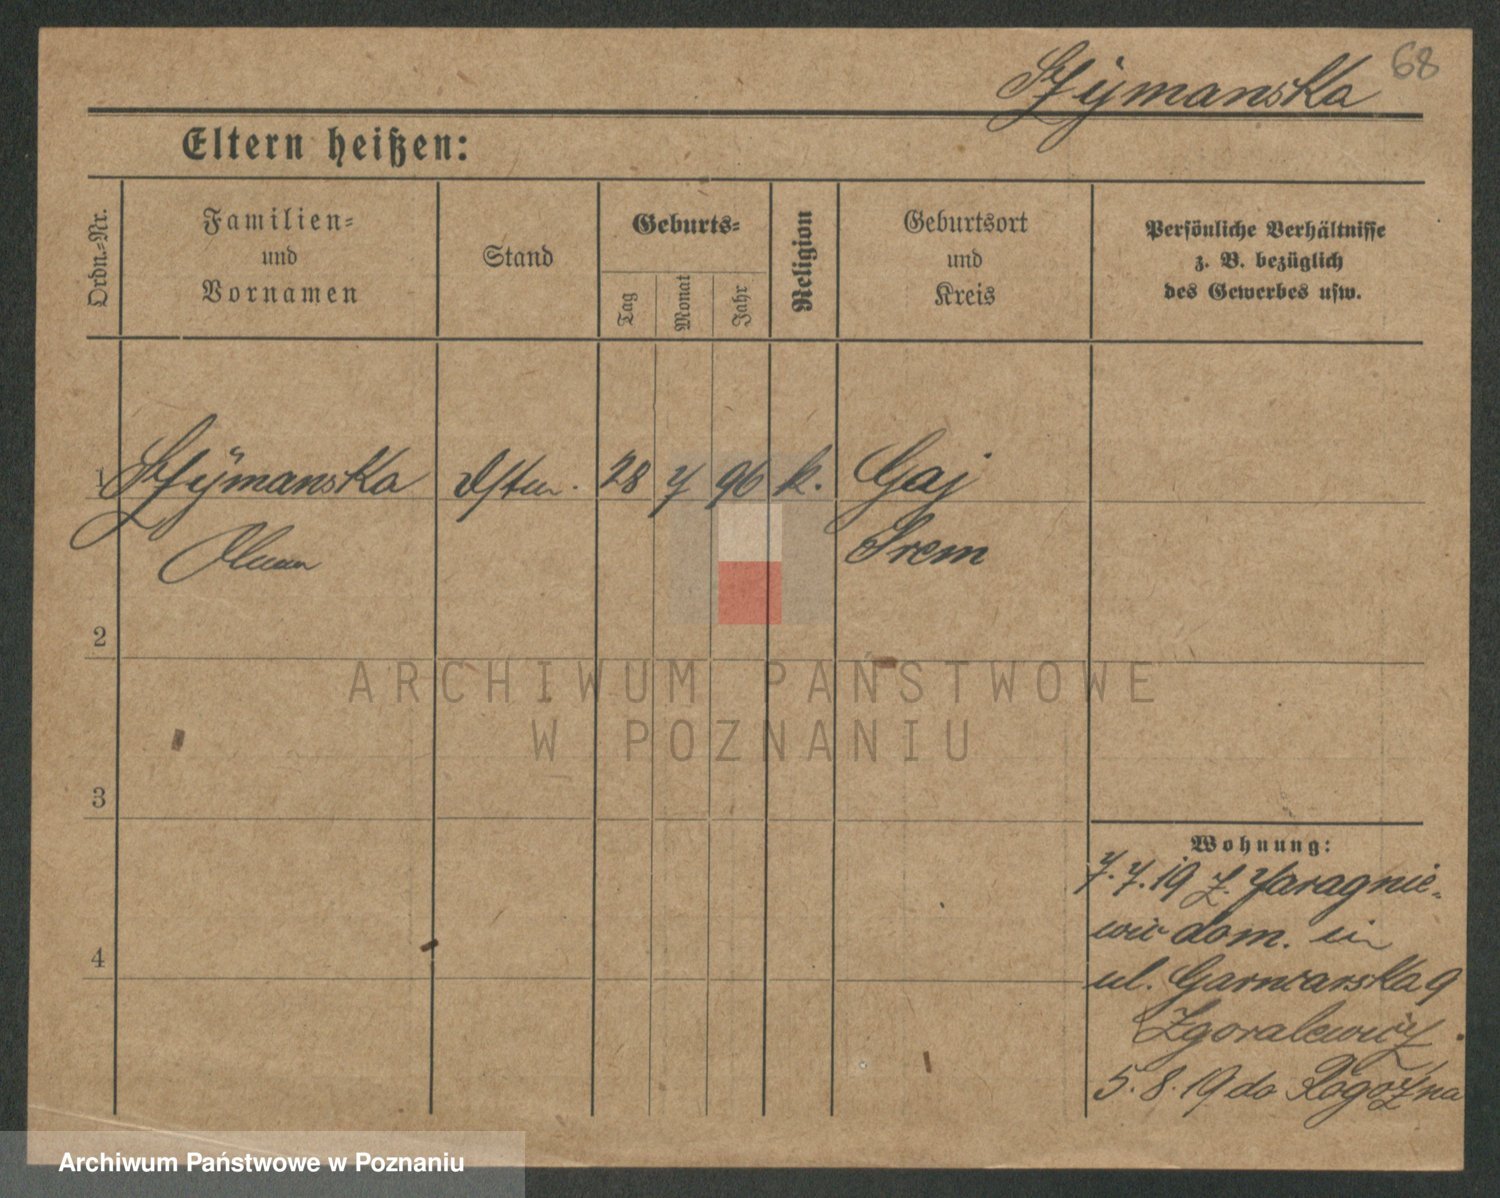 Szymanska 68
Eltern heißen:
Ordn.-Nr.
Familien-
und
Vornamen
Stand
Geburts-
Tag
Monat
Jahr
Religion
Geburtsort
und
Kreis
Persönliche Verhältnisse
z. B. bezüglich
des Gewerbes usw.
1 Szymanska 28 7 96 k. Gaj
Srem
2
3
4
Wohnung:
7.7.19 z
dom. in
ul. Garncarska 9
Zgoralewicz.
5.8.19 do Rogozna
ARCHIWUM PAŃSTWOWE
W POZNANIU
Archiwum Państwowe w Poznaniu